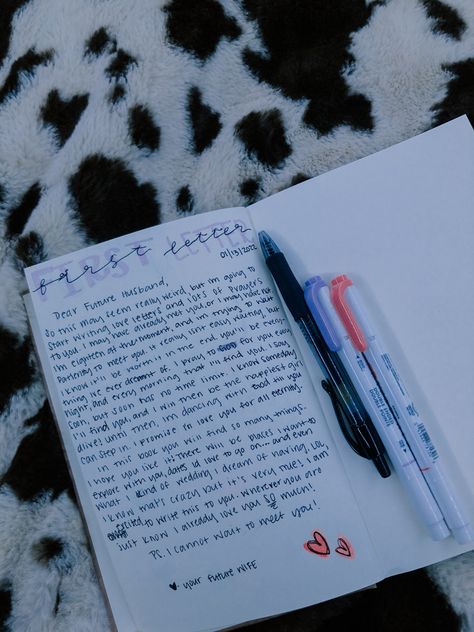 FIRST LETTER
first letter
01/13/2022
Dear Future Husband,
So this may seem really weird but, i'm going to
Start writing love letters and lots of prayers
to you. I may have already met you or I may have not.
I'm eighteen at the moment, and im trying to wait
patiently to meet you. It really isnt easy waiting but
I know it'll be worth it in the end. You'll be every
thing ive ever dreamt of. I pray to God for you every
night, and every morning that ill find you, I say
soon but soon has no time limit. I know someday
I'll find you and I will then be the happiest girl
alive! until then, im dancing with God to you
can step in. I promise to love you for all eternity.
In this book you will find so many things.
I hope you like it! There will be places I want to
explore with you, dates id love to go on... and even
what kind of wedding I dream of having lol
I know that's crazy but it's very true!, I am
excited to write this to you. Wherever you are
Just know I already love you so much!
Ps. I cannot wait to meet you!
♥. your future WIFE